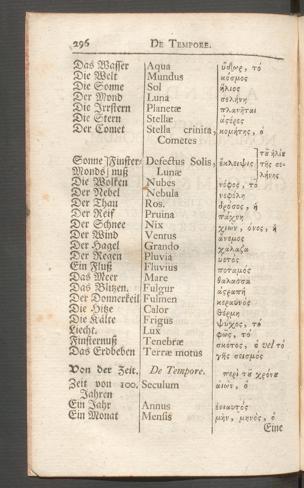 296 DE TEMPORE.
Das Wasser Aqua ὕδωρ, τό
Die Welt Mundus κόσμος
Die Sonne Sol ἥλιος
Der Mond Luna σελήνη
Die Irrstern Planetæ πλανῆται
Die Stern Stellæ ἀστέρες
Der Comet Stella crinita, κομήτης, ὁ
Cometes
Sonne Finster- Defectus Solis, ἔκλειψις τῦ ἡλίυ τῆς σε-
Monds nuß Lunæ λήνης
Die Wolken Nubes νέφος, τό
Der Nebel Nebula νεφέλη
Der Thau Ros. δρόσος, ἡ
Der Reif Pruina πάχνη
Der Schnee Nix χιων, όνος, ἡ
Der Wind Ventus ἄνεμος
Der Hagel Grando χάλαζα
Der Regen Pluvia ὑετός
Ein Fluß Fluvius ποταμός
Das Meer Mare θάλασσα
Das Blitzen. Fulgur ἀστραπή
Der Donnerkeil Fulmen κεραυνός
Die Hitze Calor θέρμη
Die Kälte Frigus ψῦχος, τό
Liecht. Lux φως, τό
Finsternuß Tenebræ σκότος, ὁ vel τό
Das Erdbeben Terræ motus γῆς σεισμός
Von der Zeit. De Tempore. περὶ τῦ χρόνυ
Zeit von 100. Seculum αἰων, ὁ
Jahren
Ein Jahr Annus ἐνιαυτός
Ein Monat Mensis μὴν, μηνός, ὁ
Eine